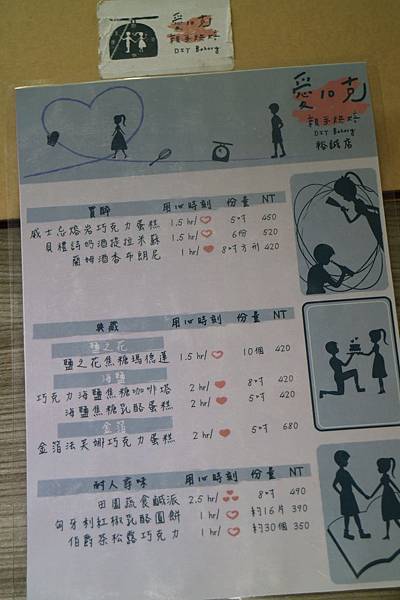 愛10克
親手烘焙
DIY Bakery
愛10克
親手烘焙
DIY Bakery
裕誠店
用心時刻 份量 NT
威士忌熔岩巧克力蛋糕 1.5 hr/ 5吋 450
貝禮詩奶酒提拉米蘇 1.5 hr/ 6份 520
蘭姆酒香布朗尼 1 hr/ 8吋方形 420
典藏 用心時刻 份量 NT
鹽之花
鹽之花焦糖瑪德蓮 1.5 hr/ 10個 420
海鹽
巧克力海鹽焦糖咖啡塔 2 hr/ 8吋 420
海鹽焦糖乳酪蛋糕 2 hr/ 5吋 420
金箔
金箔法芙娜巧克力蛋糕 2 hr/ 5吋 680
耐人尋味 用心時刻 份量 NT
田園蔬食鹹派 2.5 hr/ 8吋 490
匈牙利紅椒乳酪圓餅 1 hr/ 約16片 390
伯爵茶松露巧克力 1 hr/ 約30個 350